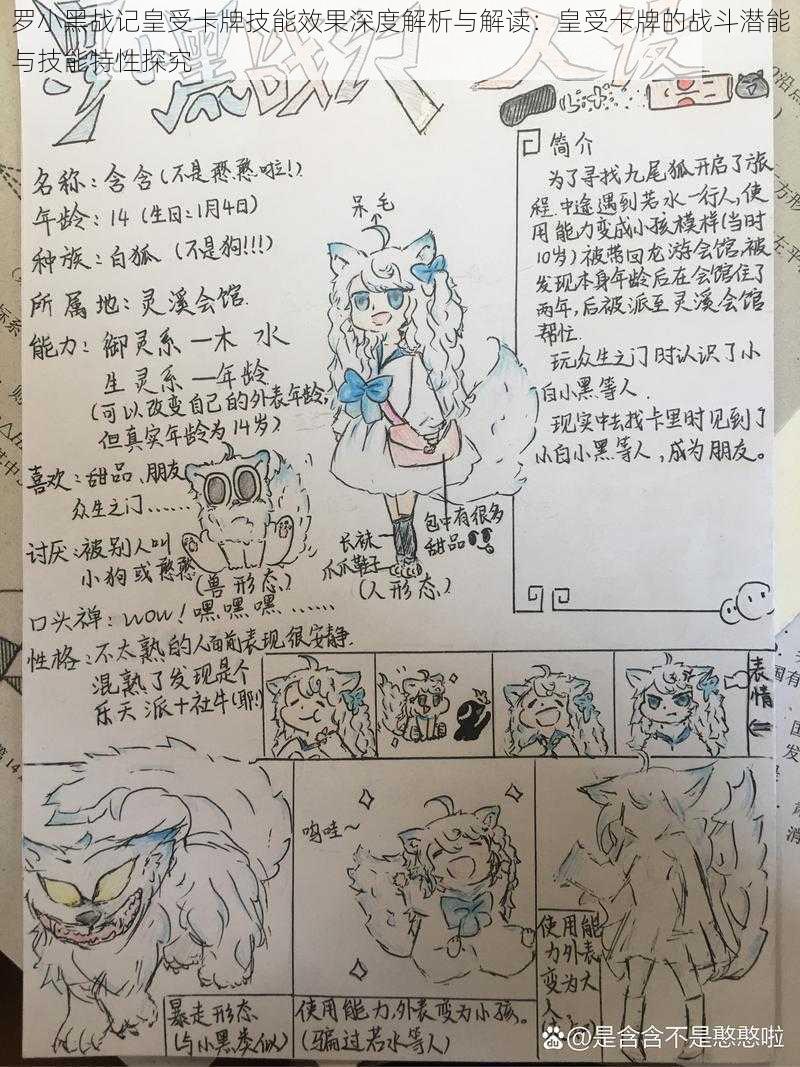 罗小黑战记皇受卡牌技能效果深度解析与解读：皇受卡牌的战斗潜能
与技能特性探究
黑战 人设
名称：含含（不是憨憨啦！）
年龄：14（生日：1月4日）
种族：白狐（不是狗!!!）
所属地：灵溪会馆.
能力：御灵系—木 水
生灵系—年龄
（可以改变自己的外表年龄，
但真实年龄为14岁）
喜欢：甜品、朋友
众生之门......
讨厌：被别人叫
小狗或憨憨
（兽形态）
口头禅：wow！嘿嘿嘿......
性格：不太熟的人面前表现很安静.
混熟了发现是个
乐天派+社牛
呆毛
长袜
爪爪鞋子
包中有很多
甜品
（人形态）
简介
为了寻找九尾狐开启了旅
程.中途遇到若水一行人,使
用能力变成小孩模样（当时
10岁）被带回龙游会馆.被
发现本身年龄后在会馆住了
两年,后被派至灵溪会馆
帮忙.
玩众生之门时认识了小
白小黑等人.
现实中去找卡里时见到了
小白小黑等人,成为朋友。
表情
暴走形态
（与小黑类似）
呜哇~
使用能力,外表变为小孩。
（骗过若水等人）
使用能
力外表
变为大
人
Bai du @是含含不是憨憨啦